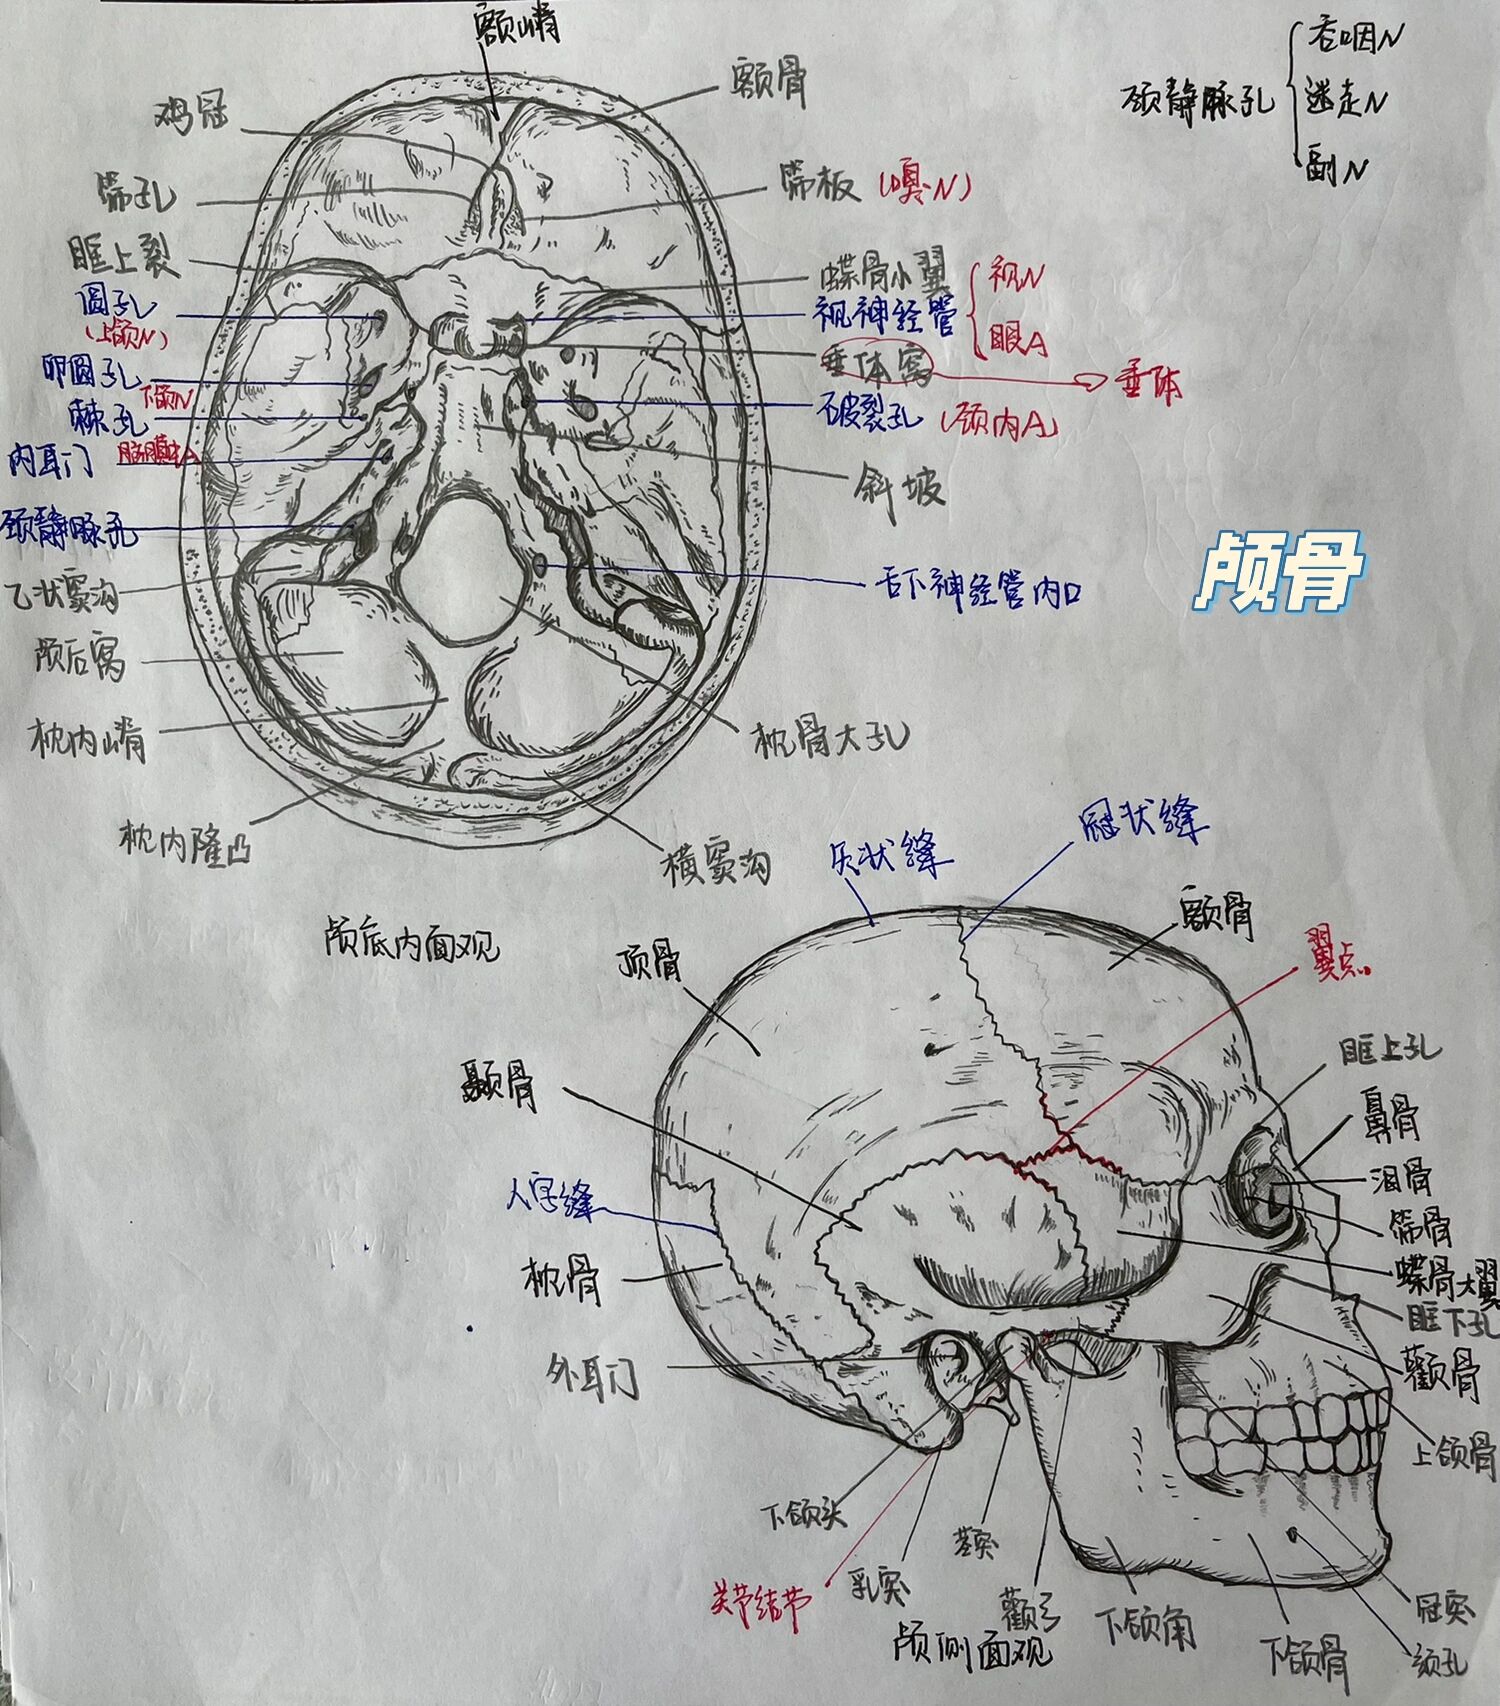 额嵴
额骨
鸡冠
筛孔
筛板(嗅N)
眶上裂
圆孔
(上颌N)
卵圆孔
下颌N
棘孔
内耳门
颈静脉孔
乙状窦沟
颅后窝
枕内嵴
枕内隆凸
蝶骨小翼
视神经管
视N
眼A
垂体窝
垂体
破裂孔(颈内A)
斜坡
舌下神经管内口
枕骨大孔
横窦沟
颅底内面观
颈静脉孔
舌咽N
迷走N
副N
颅骨
矢状缝
冠状缝
额骨
翼点
顶骨
颞骨
人字缝
枕骨
外耳门
眶上孔
鼻骨
泪骨
筛骨
蝶骨大翼
眶下孔
颧骨
上颌骨
下颌头
关节结节
乳突
茎突
颧弓
下颌角
下颌骨
冠突
颏孔
颅侧面观